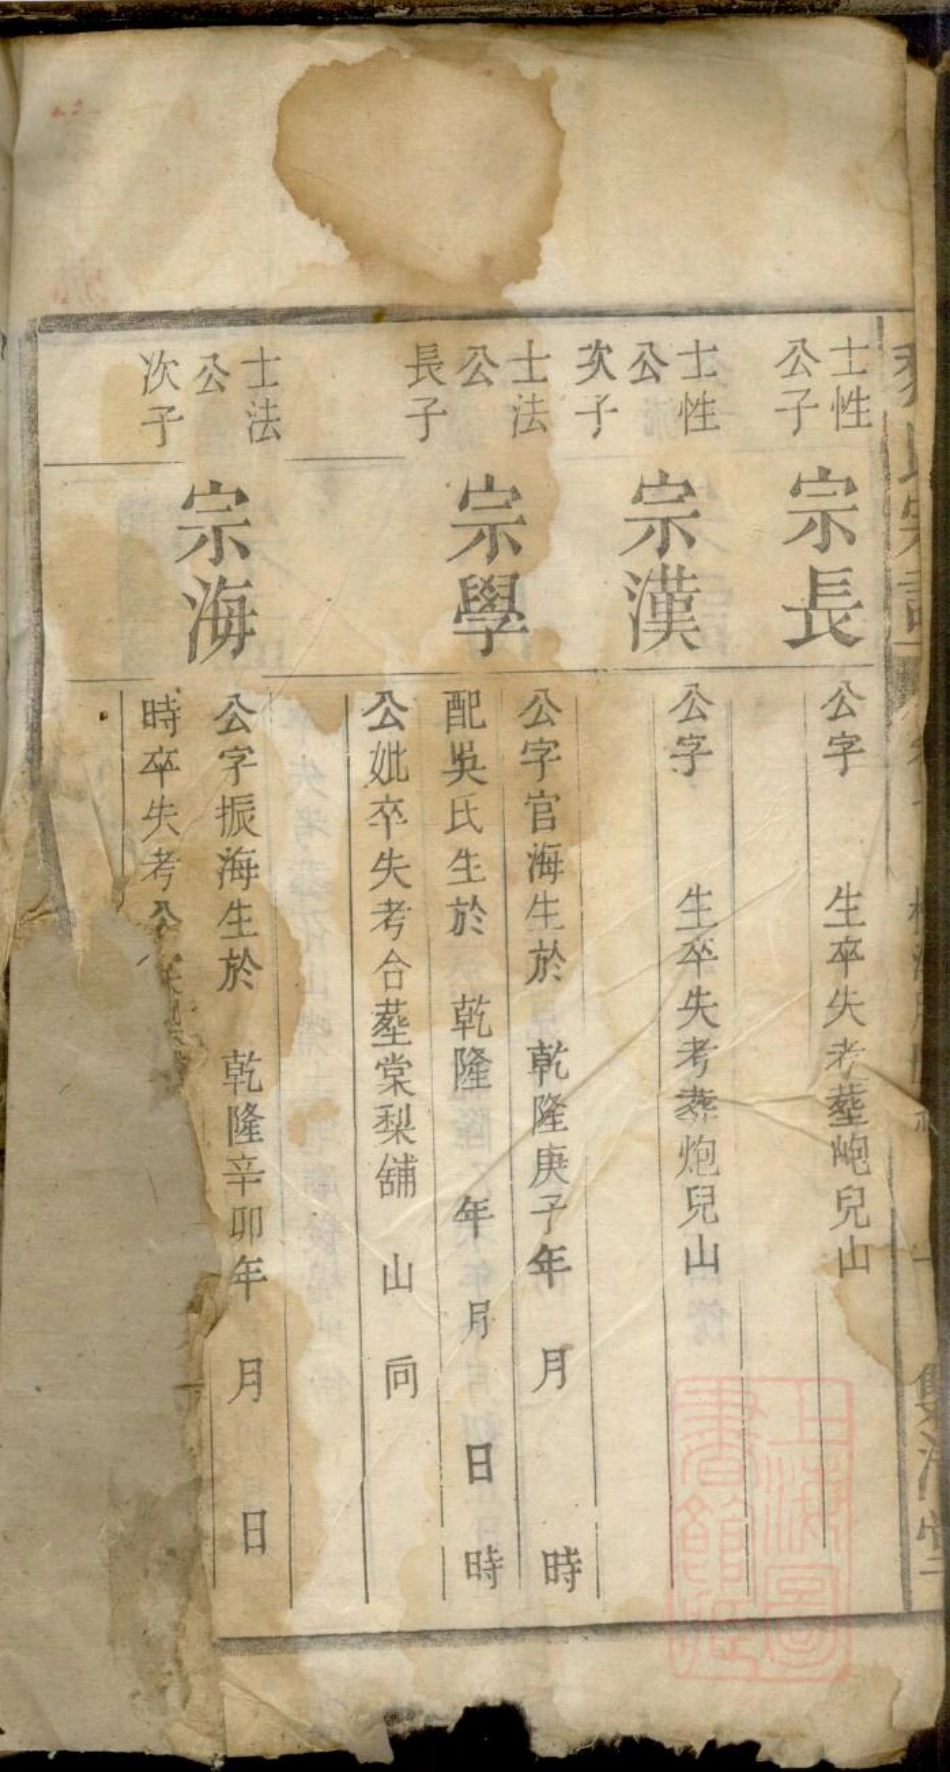 士性
公子
宗長
公字 生卒失考塟峗兒山
士性
公
次子
宗漢
公字 生卒失考葬炮兒山
士法
公
長子
宗學
公字官海生於 乾隆庚子年 月 時
配吳氏生於 乾隆 年 月 日 時
公妣卒失考合塟棠梨舖 山 向
士法
公
次子
宗海
公字振海生於 乾隆辛卯年 月 日
時卒失考公
上海圖
書館藏